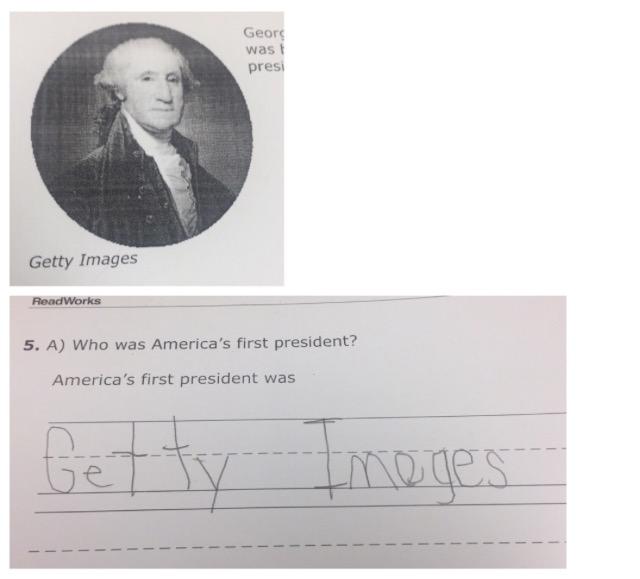 Georg
was b
presi
Getty Images
ReadWorks
5. A) Who was America's first president?
America's first president was
Getty Images